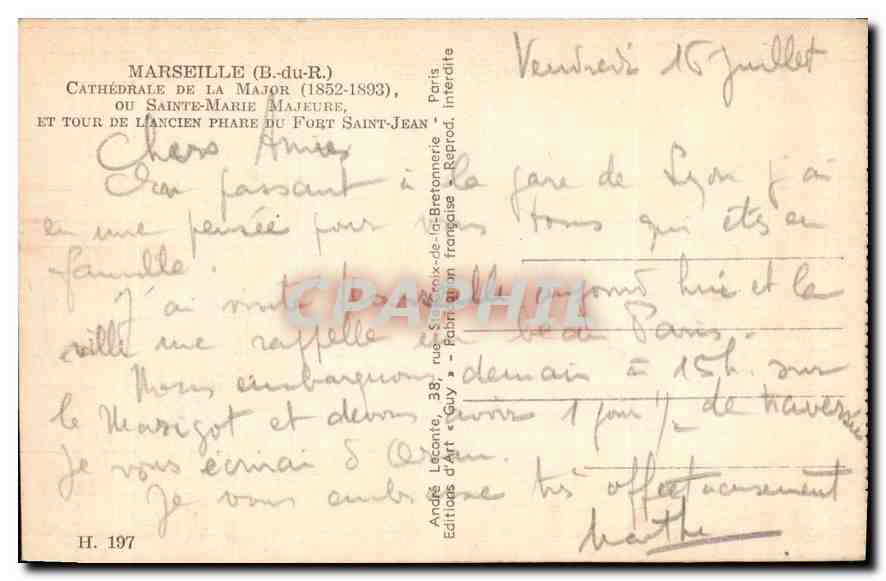 MARSEILLE (B.-du-R.)
CATHÉDRALE DE LA MAJOR (1852-1893),
OU SAINTE-MARIE MAJEURE,
ET TOUR DE L'ANCIEN PHARE DU FORT SAINT-JEAN
Vendredi 16 Juillet
Chers Amies
En passant à la gare de Lyon j'ai
eu une pensée pour vous tous qui êtes en
famille.
J'ai visité Marseille aujourd'hui et la
ville me rappelle un beau Paris.
Nous embarquons demain à 15h. sur
le Marigot et devons avoir 1 jour 1/2 de traversée
Je vous écrirai d'Oran.
Je vous embrasse très affectueusement
Marthe
H. 197
André Leconte, 38, rue Ste-Croix-de-la-Bretonnerie - Paris
Editions d'Art « Guy » - Fabrication française - Reprod. interdite
CPAPHIL